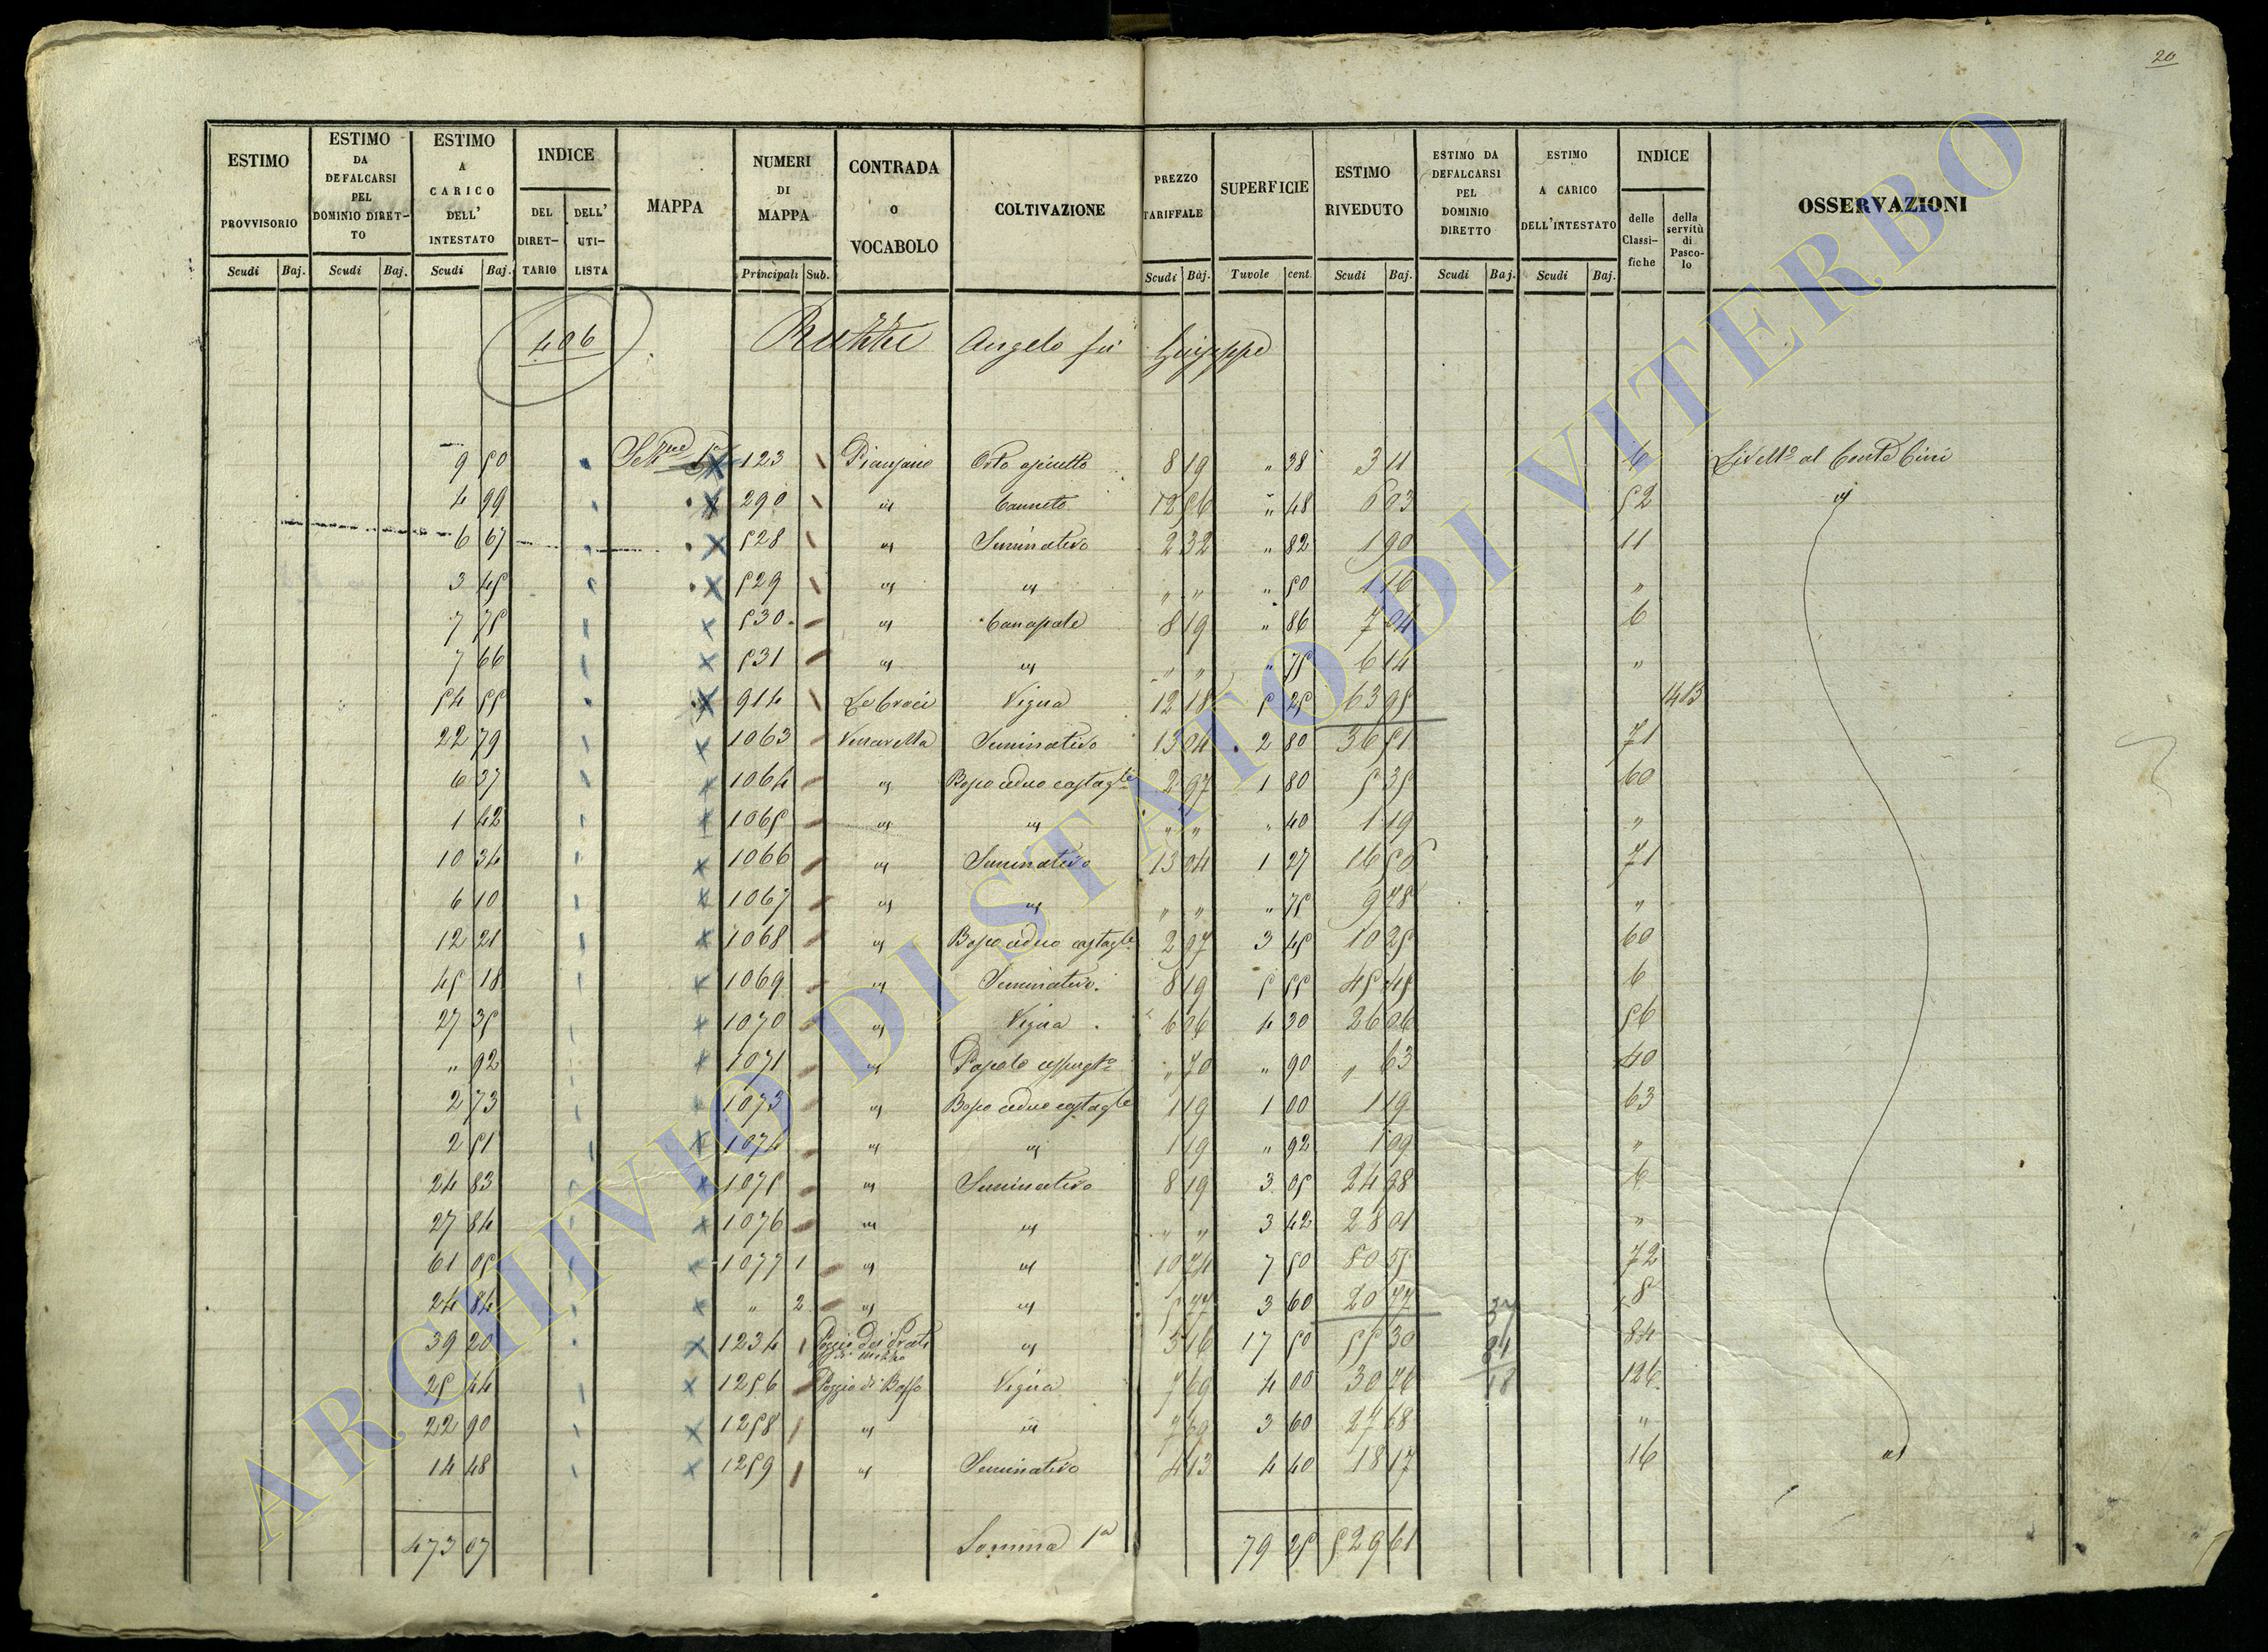 20
ESTIMO PROVVISORIO Scudi Baj.
ESTIMO DA DEFALCARSI PEL DOMINIO DIRET-TO Scudi Baj.
ESTIMO A CARICO DELL' INTESTATO Scudi Baj.
INDICE DEL DIRET-TARIO DELL' UTI-LISTA
MAPPA
NUMERI DI MAPPA Principali Sub.
CONTRADA o VOCABOLO
COLTIVAZIONE
PREZZO TARIFFALE Scudi Baj.
SUPERFICIE Tuvole cent.
ESTIMO RIVEDUTO Scudi Baj.
ESTIMO DA DEFALCARSI PEL DOMINIO DIRETTO Scudi Baj.
ESTIMO A CARICO DELL'INTESTATO Scudi Baj.
INDICE delle Classi-fiche della servitù di Pasco-lo
OSSERVAZIONI
406 Ruzzi Angelo fu Giuseppe
9 50 Sezne 1a 123 Piansano Orto asciutto 8 19 " 38 3 11 6 Livello al Conte Cini
4 99 290 id Canneto 12 56 " 48 6 03 52 id
6 67 528 id Seminativo 2 32 " 82 1 90 11
3 45 529 id id " " " 50 1 16 "
7 75 530 id Canapale 8 19 " 86 7 04 6
7 66 531 id id " " " 75 6 14 "
54 55 914 Le Croci Vigna 12 18 5 25 63 95 14 13
22 79 1063 Seminativo 13 04 2 80 36 51 71
6 37 1064 id Bosco ceduo castagle 2 97 1 80 5 35 60
1 42 1065 id id " " " 40 1 19 "
10 34 1066 id Seminativo 13 04 1 27 16 56 71
6 10 1067 id id " " " 75 9 78 "
12 21 1068 id Bosco ceduo castagle 2 97 3 45 10 25 60
45 18 1069 id Seminativo 8 19 5 55 45 45 6
27 35 1070 id Vigna 6 06 4 30 26 06 56
" 92 1071 id Pascolo " 70 " 90 " 63 40
2 73 1073 id Bosco ceduo castagle 1 19 1 00 1 19 63
2 51 1074 id id 1 19 " 92 1 09 "
24 83 1075 id Seminativo 8 19 3 05 24 98 6
27 84 1076 id id " " 3 42 28 01 "
61 05 1077 1 id id 10 74 7 50 80 55 72
24 84 " 2 id id 5 77 3 60 20 77 8 37
39 20 1234 Poggio dei Prati di mezzo id 3 16 17 50 55 30 84
25 44 1256 Poggio di Basso Vigna 7 69 4 00 30 76 18 126
22 90 1258 id id 7 69 3 60 27 68 "
14 48 1259 id Seminativo 4 13 4 40 18 17 16 id
473 07 Somma 1a 79 25 529 61
ARCHIVIO DI STATO DI VITERBO